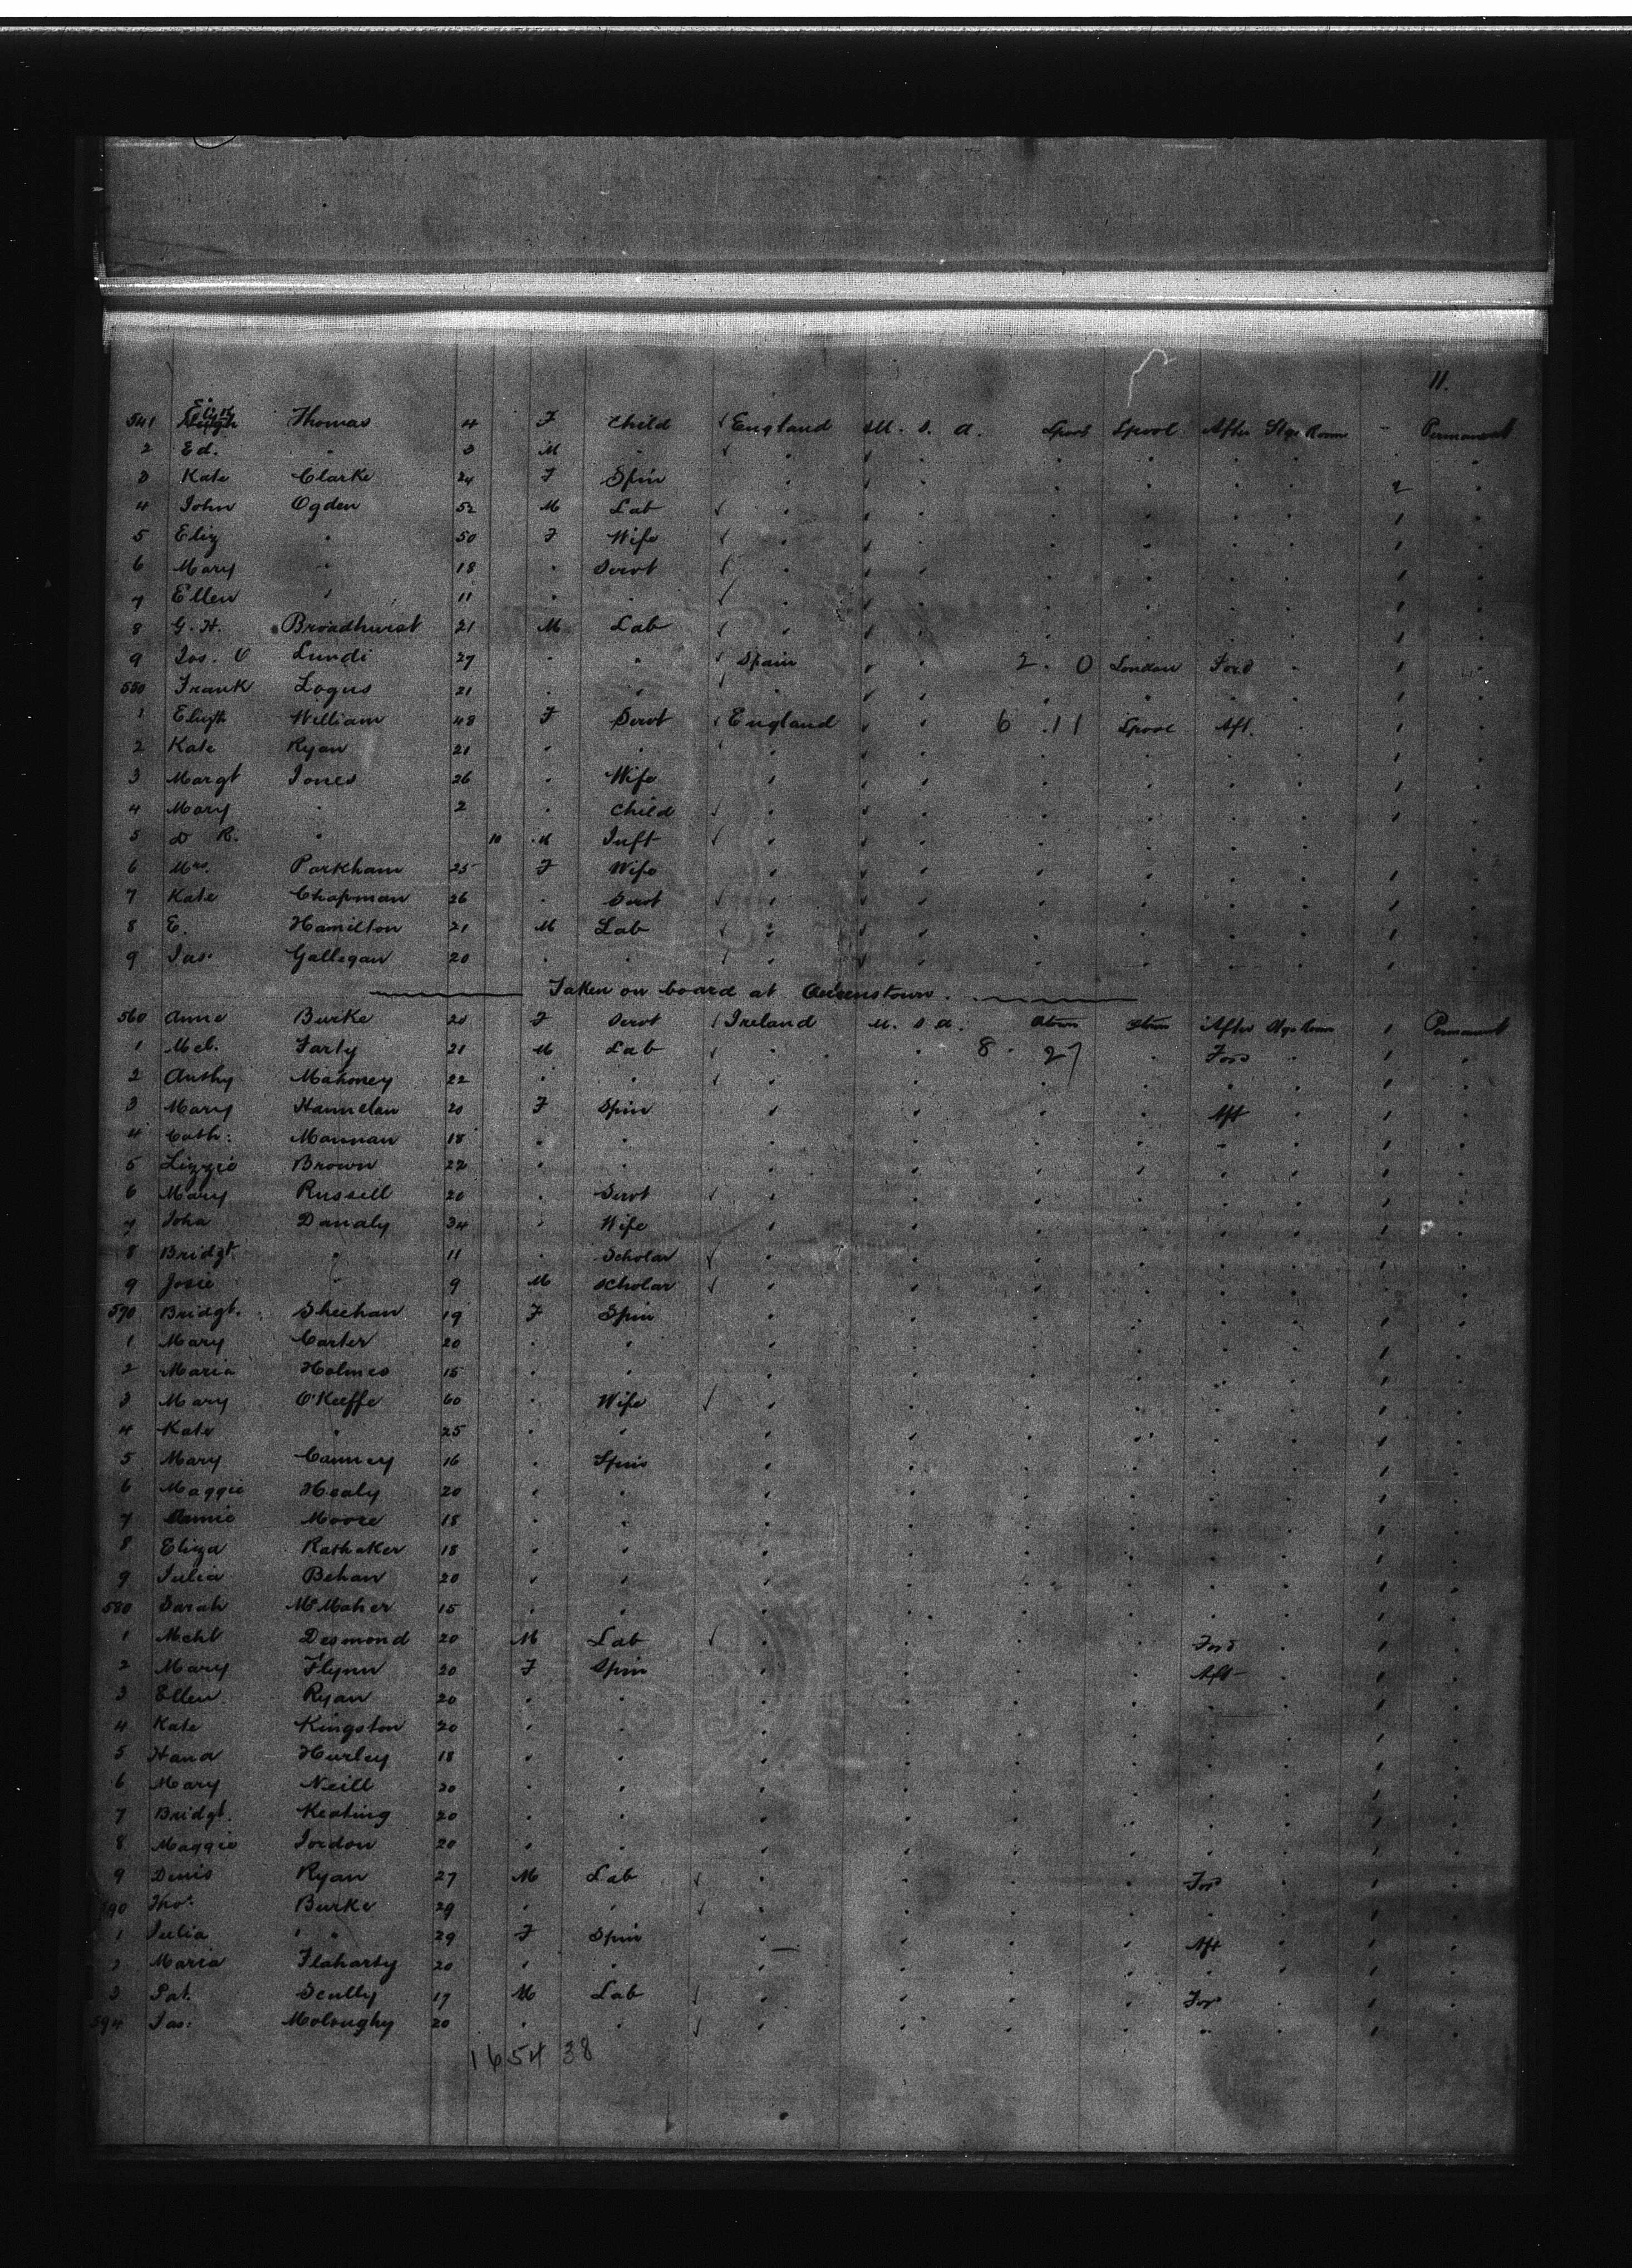 11.
541 Elizth Thomas 4 F Child England U. S. A. Lpool Lpool After Stge Room " Permanent
2 Ed. " 3 M "
3 Kate Clarke 24 F Spin " 2
4 John Ogden 52 M Lab "
5 Eliz " 50 F Wife "
6 Mary " 18 " Servt "
7 Ellen " 11 " "
8 G. H. Broadhurst 21 M Lab "
9 Jos. Lundi 27 " " Spain 2 . 0 London Ford
550 Frank Logus 21 " "
1 Elizth William 48 F Servt England 6 . 11 Lpool Aft.
2 Kate Ryan 21 " "
3 Margt Jones 26 " Wife
4 Mary " 2 " Child
5 D R. " 10 M Inft
6 Mrs. Parkham 25 F Wife
7 Kate Chapman 26 " Servt
8 E. Hamilton 21 M Lab
9 Jas. Gallegan 20 " "
Taken on board at Queenstown.
560 Anne Burke 20 F Servt Ireland U. S. A. Qtown Qtown After Stge Room 1 Permanent
1 Mcl. Farty 21 M Lab 8 . 27 Ford
2 Anthy Mahoney 22 " "
3 Mary Hannelan 20 F Spin Aft
4 Cath: Mannan 18 " "
5 Lizzie Brown 22 " "
6 Mary Russell 20 " Servt
7 Joha Danaly 34 " Wife
8 Bridgt. " 11 " Scholar
9 Josie " 9 M Scholar
570 Bridgt. Sheehan 19 F Spin
1 Mary Carter 20 " "
2 Maria Holmes 15 " "
3 Mary O'Keeffe 60 " Wife
4 Kate " 25 " "
5 Mary Canney 16 " Spin
6 Maggie Healy 20 " "
7 Annie Moore 18 " "
8 Eliza Rathaker 18 " "
9 Julia Behan 20 " "
580 Sarah McMaher 15 " "
1 Mchl Desmond 20 M Lab Ford
2 Mary Flynn 20 F Spin Aft
3 Ellen Ryan 20 " "
4 Kate Kingston 20 " "
5 Hana Hurley 18 " "
6 Mary Neill 20 " "
7 Bridgt. Keating 20 " "
8 Maggie Jordon 20 " "
9 Denis Ryan 27 M Lab Ford
590 Tho: Burke 29 " "
1 Julia " 29 F Spin Aft
2 Maria Flaharty 20 " "
3 Pat. Scully 17 M Lab Ford
594 Jas: Moloughy 20 " "
1654 38